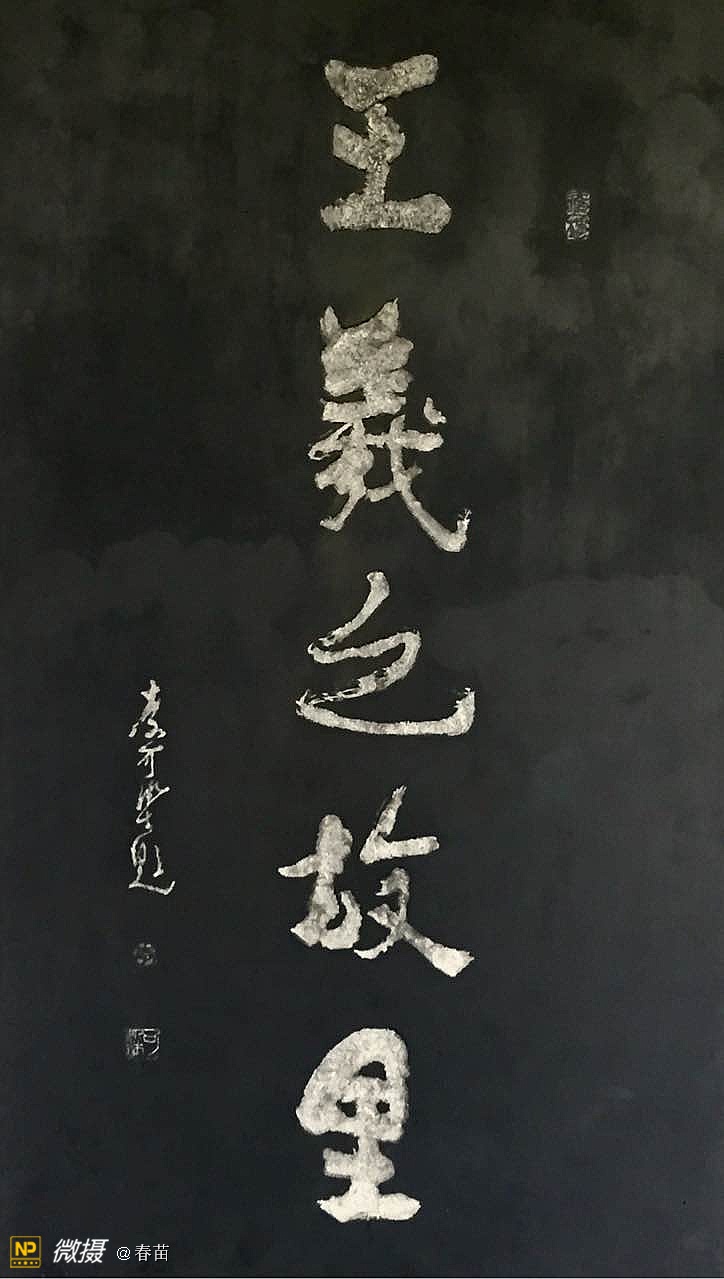 王羲之故里
李可染題
NP 微摄 @春苗